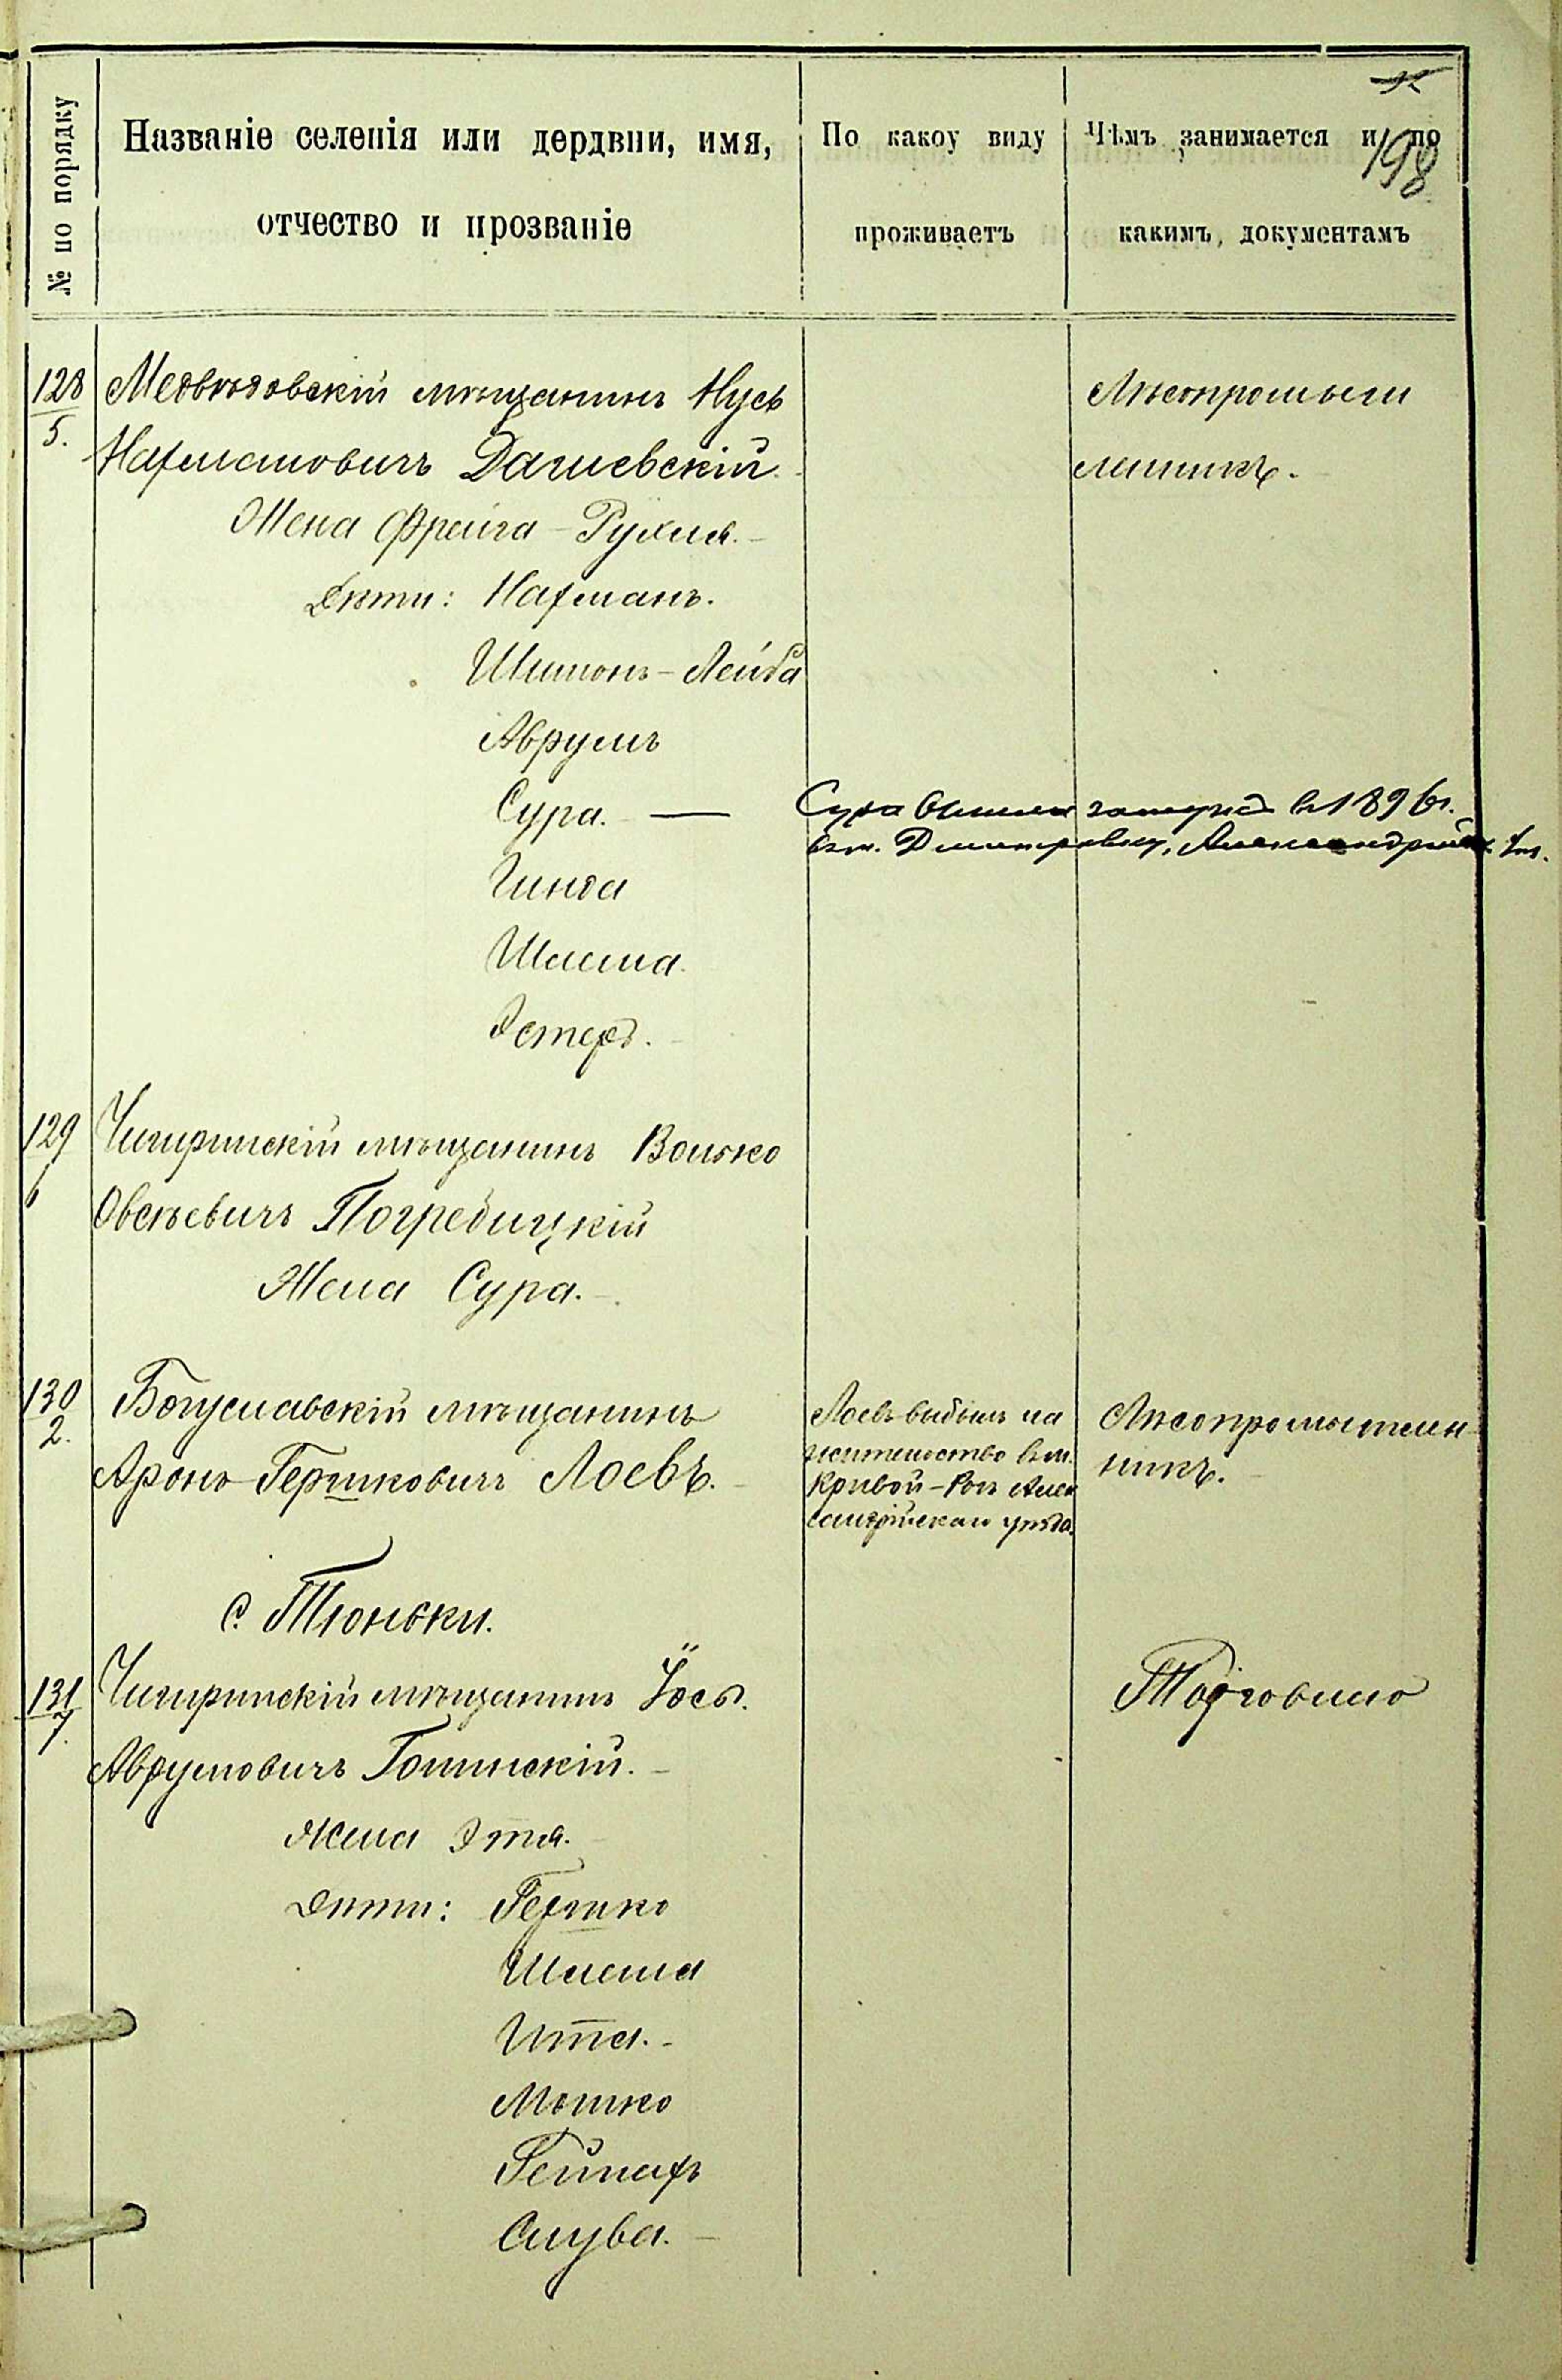 198
№ по порядку
Названіе селенія или дердвни, имя,
отчество и прозваніе
По какоу виду
проживаетъ
Чѣмъ занимается и по
какимъ документамъ
128
5.
Медвѣдовскій мѣщанинъ Нусь
Нахмановичъ Дашевскій.
Лѣсопромыш
ленникъ.
Жена Фрейга-Рухля.
Дѣти: Нахманъ.
Шимонъ-Лейба
Аврумъ
Сура. — Сура вышла замужъ въ 1896 г.
въ м. Дмитровку, Александрійск. у.
Гинда
Шлема
Эстеръ.
129
6
Чигиринскій мѣщанинъ Волько
Овсѣевичъ Погребицкій
Жена Сура.
130
2.
Богуславскій мѣщанинъ
Аронъ Гершковичъ Лоевъ.
Лоевъ выбылъ на
жительство въ м.
Кривой-Рогъ Алек
сандрійскаго уѣзда.
Лѣсопромышлен
никъ.
с. Тіоньки.
131
7.
Чигиринскій мѣщанинъ Іось
Аврумовичъ Голинскій.
Торговлею
Жена Этя.
Дѣти: Гершко
Шлема
Ита.
Мошко
Рейнахъ
Слува.